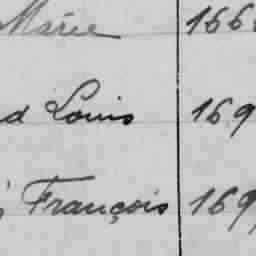 Marie 166
d Louis 169
François 169